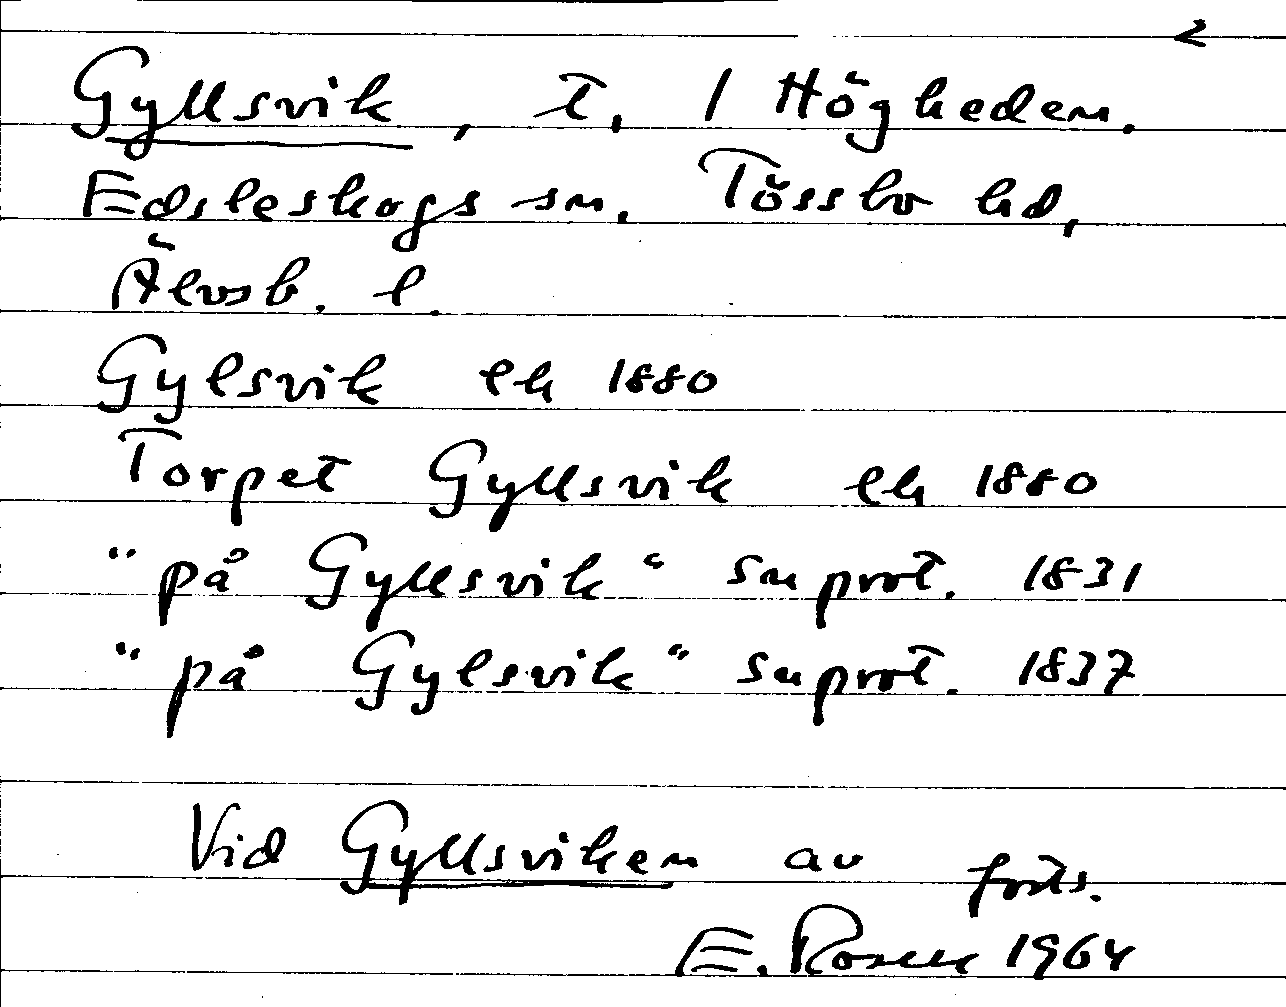 Gyllsvik, t. / Högheden.
Edsleskogs sn. Tössbo hd,
Älvsb. l.
Gylsvik ek 1880
Torpet Gyllsvik ek 1880
"på Gyllsvik" snprot. 1831
"på Gylsvik" snprot. 1837
Vid Gyllsviken av forts.
E. Rosell 1964